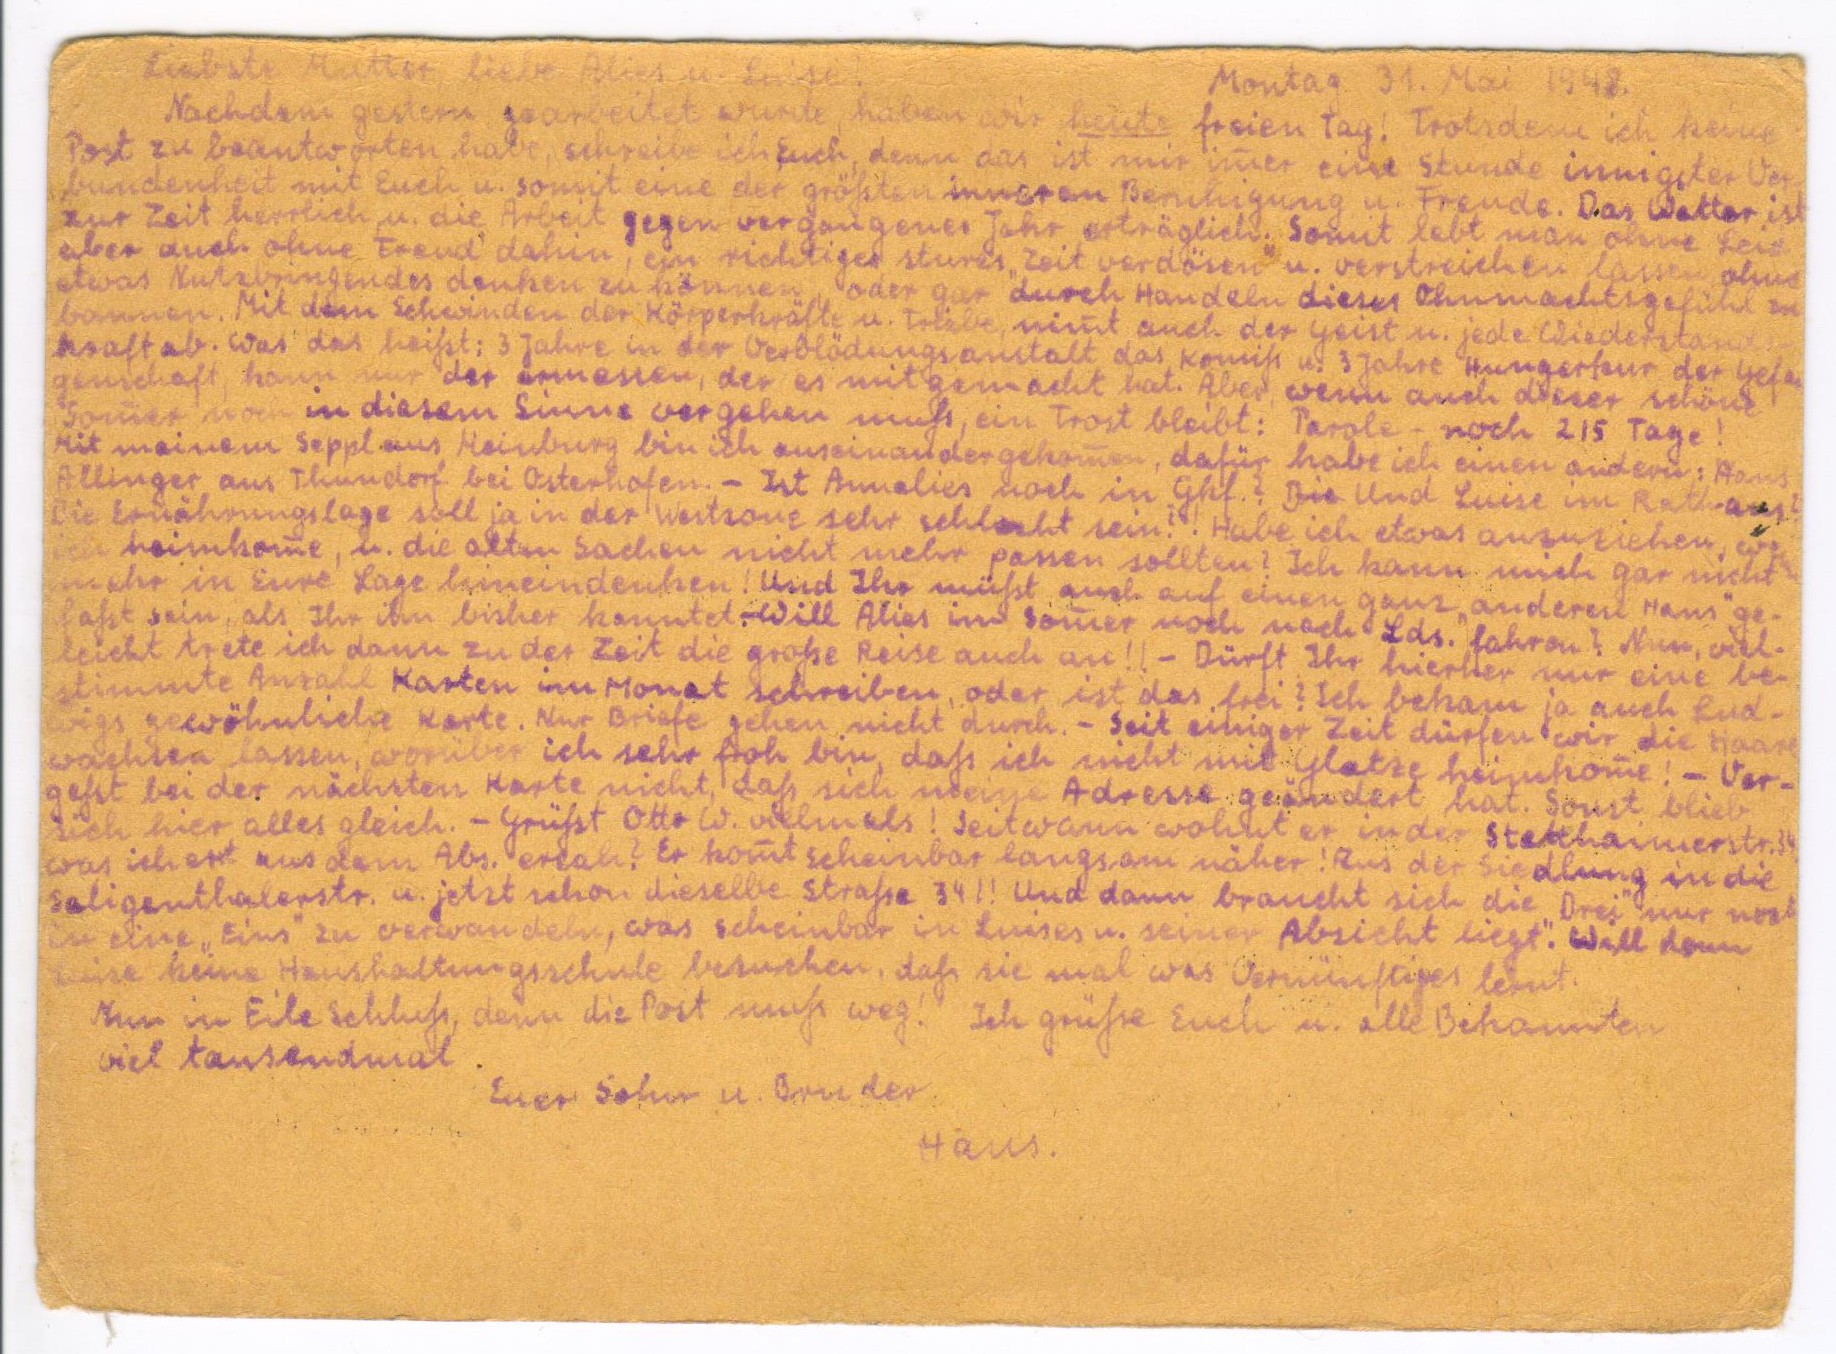 Liebste Mutter, liebe Alies u. Luise! Montag 31. Mai 1948.
Nachdem gestern gearbeitet wurde, haben wir heute freien Tag! Trotzdem ich keine
Post zu beantworten habe, schreibe ich Euch, denn das ist mir im̄er eine Stunde innigster Ver-
bundenheit mit Euch u. somit eine der größten inneren Beruhigung u. Freude. Das Wetter ist
zur Zeit herrlich u. die Arbeit gegen vergangenes Jahr erträglich. Somit lebt man ohne Leid
aber auch ohne Freud dahin, ein richtiges stures „Zeit verdösen" u. verstreichen lassen, ohne
etwas Nutzbringendes denken zu können, oder gar durch Handeln dieses Ohnmachtsgefühl zu
bannen. Mit dem Schwinden der Körperkräfte u. Triebe, nim̄t auch der Geist u. jede Wiederstands-
kraft ab. Was das heißt: 3 Jahre in der Verblödungsanstalt das Komiß u. 3 Jahre Hungerkur der Gefan
genschaft, kann nur der ermessen, der es mitgemacht hat. Aber, wenn auch dieser schöne
Som̄er noch in diesem Sinne vergehen muß, ein Trost bleibt: Parole - noch 215 Tage!
Mit meinem Seppl aus Heinburg bin ich auseinandergekom̄en, dafür habe ich einen andern: Hans
Allinger aus Thundorf bei Osterhofen. - Ist Annelies noch in Gkf.? Die Und Luise im Rathaus?
Die Ernährungslage soll ja in der Westzone sehr schlecht sein?! Habe ich etwas anzuziehen, we
ich heimkom̄e, u. die alten Sachen nicht mehr passen sollten? Ich kann mich gar nicht
mehr in Eure Lage hineindenken! Und Ihr müßt auch auf einen ganz „anderen Hans" ge-
faßt sein, als Ihr ihn bisher kanntet. - Will Alies im Som̄er noch nach Lds. fahren? Nun, viel-
leicht trete ich dann zu der Zeit die große Reise auch an!! - Dürft Ihr hierher nur eine be-
stimmte Anzahl Karten im Monat schreiben, oder ist das frei? Ich bekam ja auch Lud-
wigs gewöhnliche Karte. Nur Briefe gehen nicht durch. - Seit einiger Zeit dürfen wir die Haare
wachsen lassen, worüber ich sehr froh bin, daß ich nicht mit Glatze heimkom̄e! - Ver-
geßt bei der nächsten Karte nicht, daß sich meine Adresse geändert hat. Sonst blieb
sich hier alles gleich. - Grüßt Otto W. vielmals! Seitwann wohnt er in der Stetthaimerstr. 34
was ich erst aus dem Abs. ersah? Er kom̄t scheinbar langsam näher! Aus der Siedlung in die
Seligenthalerstr. u. jetzt schon dieselbe Straße 34!! Und dann braucht sich die „Drei" nur noch
in eine „Eins" zu verwandeln, was scheinbar in Luises u. seiner Absicht liegt". Will denn
Luise keine Haushaltungsschule besuchen, daß sie mal was Vernünftiges lernt.
Nun in Eile Schluß, denn die Post muß weg! Ich grüße Euch u. alle Bekannten
viel tausendmal.
Euer Sohn u. Bruder
Hans.